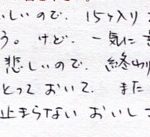 いしいので、15ヶ入り
う。けど、一気に
悲しいので、終わり
とっておいて、また
止まらない おいし